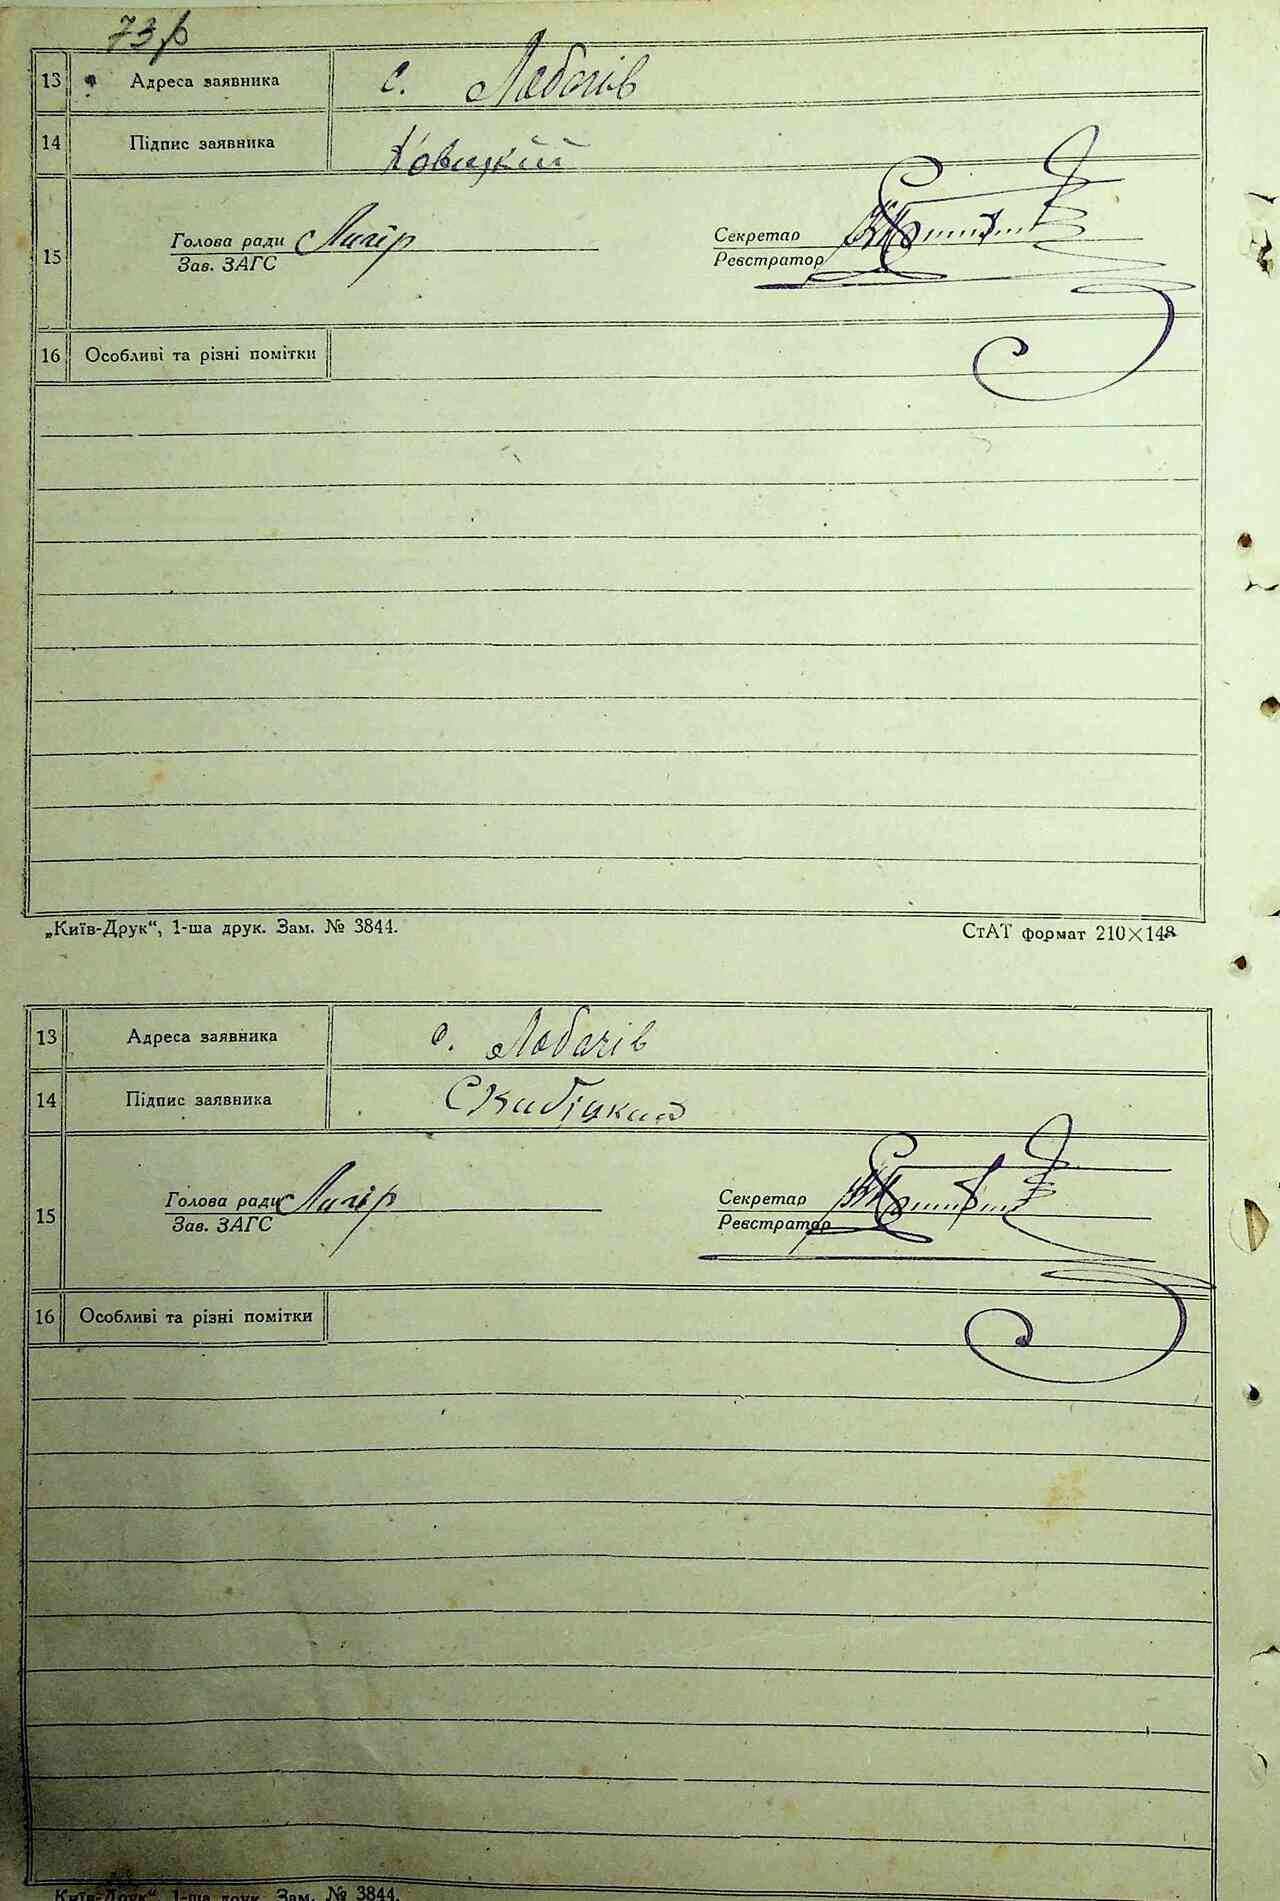 73
13 Адреса заявника с. Лобачів
14 Підпис заявника Ковицкій
15 Голова ради Секретар
Зав. ЗАГС Реєстратор
16 Особливі та різні помітки
„Київ-Друк“, 1-ша друк. Зам. № 3844. СтАТ формат 210×148
13 Адреса заявника с. Лобачів
14 Підпис заявника Скибіцкий
15 Голова ради Секретар
Зав. ЗАГС Реєстратор
16 Особливі та різні помітки
Київ-Друк“, 1-ша друк. Зам. № 3844.